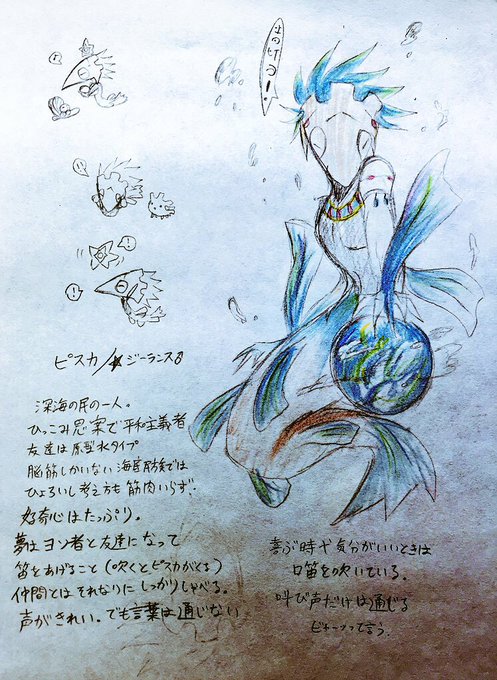 ピスカ/ジーランス♂
深海の民の一人。
ひっこみ思案で平和主義者
友達は原型水タイプ
脳筋しかいない海底民族では
ひょろいし考え方も筋肉いらず。
好奇心はたっぷり。
夢はヨソ者と友達になって
笛をあげること(吹くとピスカがくる)
仲間とはそれなりにしっかりしゃべる。
声がきれい。でも言葉は通じない
喜ぶ時や気分がいいときは
口笛を吹いている。
叫び声だけは通じる
ピキーッって言う